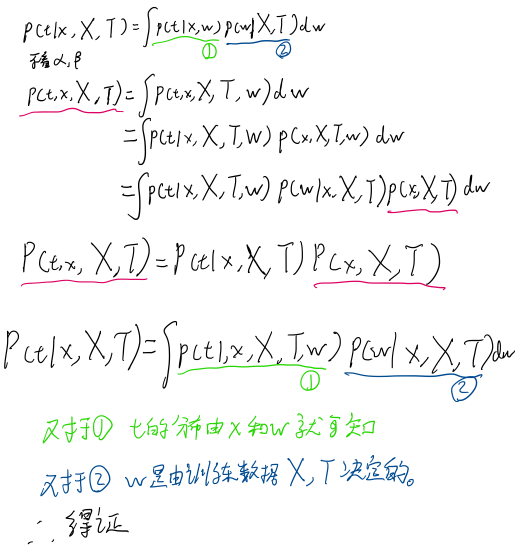 p(t|x, X, T) = ∫p(t|x, w) p(w|X, T)dw
① ②
α, β
p(t,x, X, T) = ∫p(t,x, X, T, w) dw
= ∫p(t|x, X, T, w) p(x, X, T, w) dw
= ∫p(t|x, X, T, w) p(w|x, X, T) p(x, X, T) dw
P(t,x, X, T) = P(t|x, X, T) P(x, X, T)
P(t|x, X, T) = ∫p(t|,x, X, T, w) p(w|x, X, T)dw
① ②
对于① t的分布由x和w就可知
对于② w是由训练数据 X, T决定的。
∴ 得证